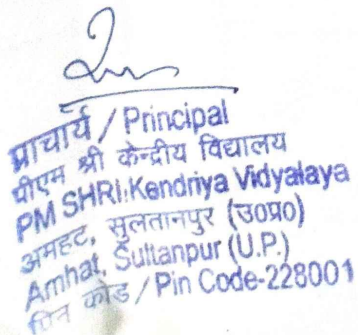 प्राचार्य / Principal
पीएम श्री केन्द्रीय विद्यालय
PM SHRI.Kendriya Vidyalaya
अमहट, सुलतानपुर (उ०प्र०)
Amhat, Sultanpur (U.P.)
पिन कोड / Pin Code-228001